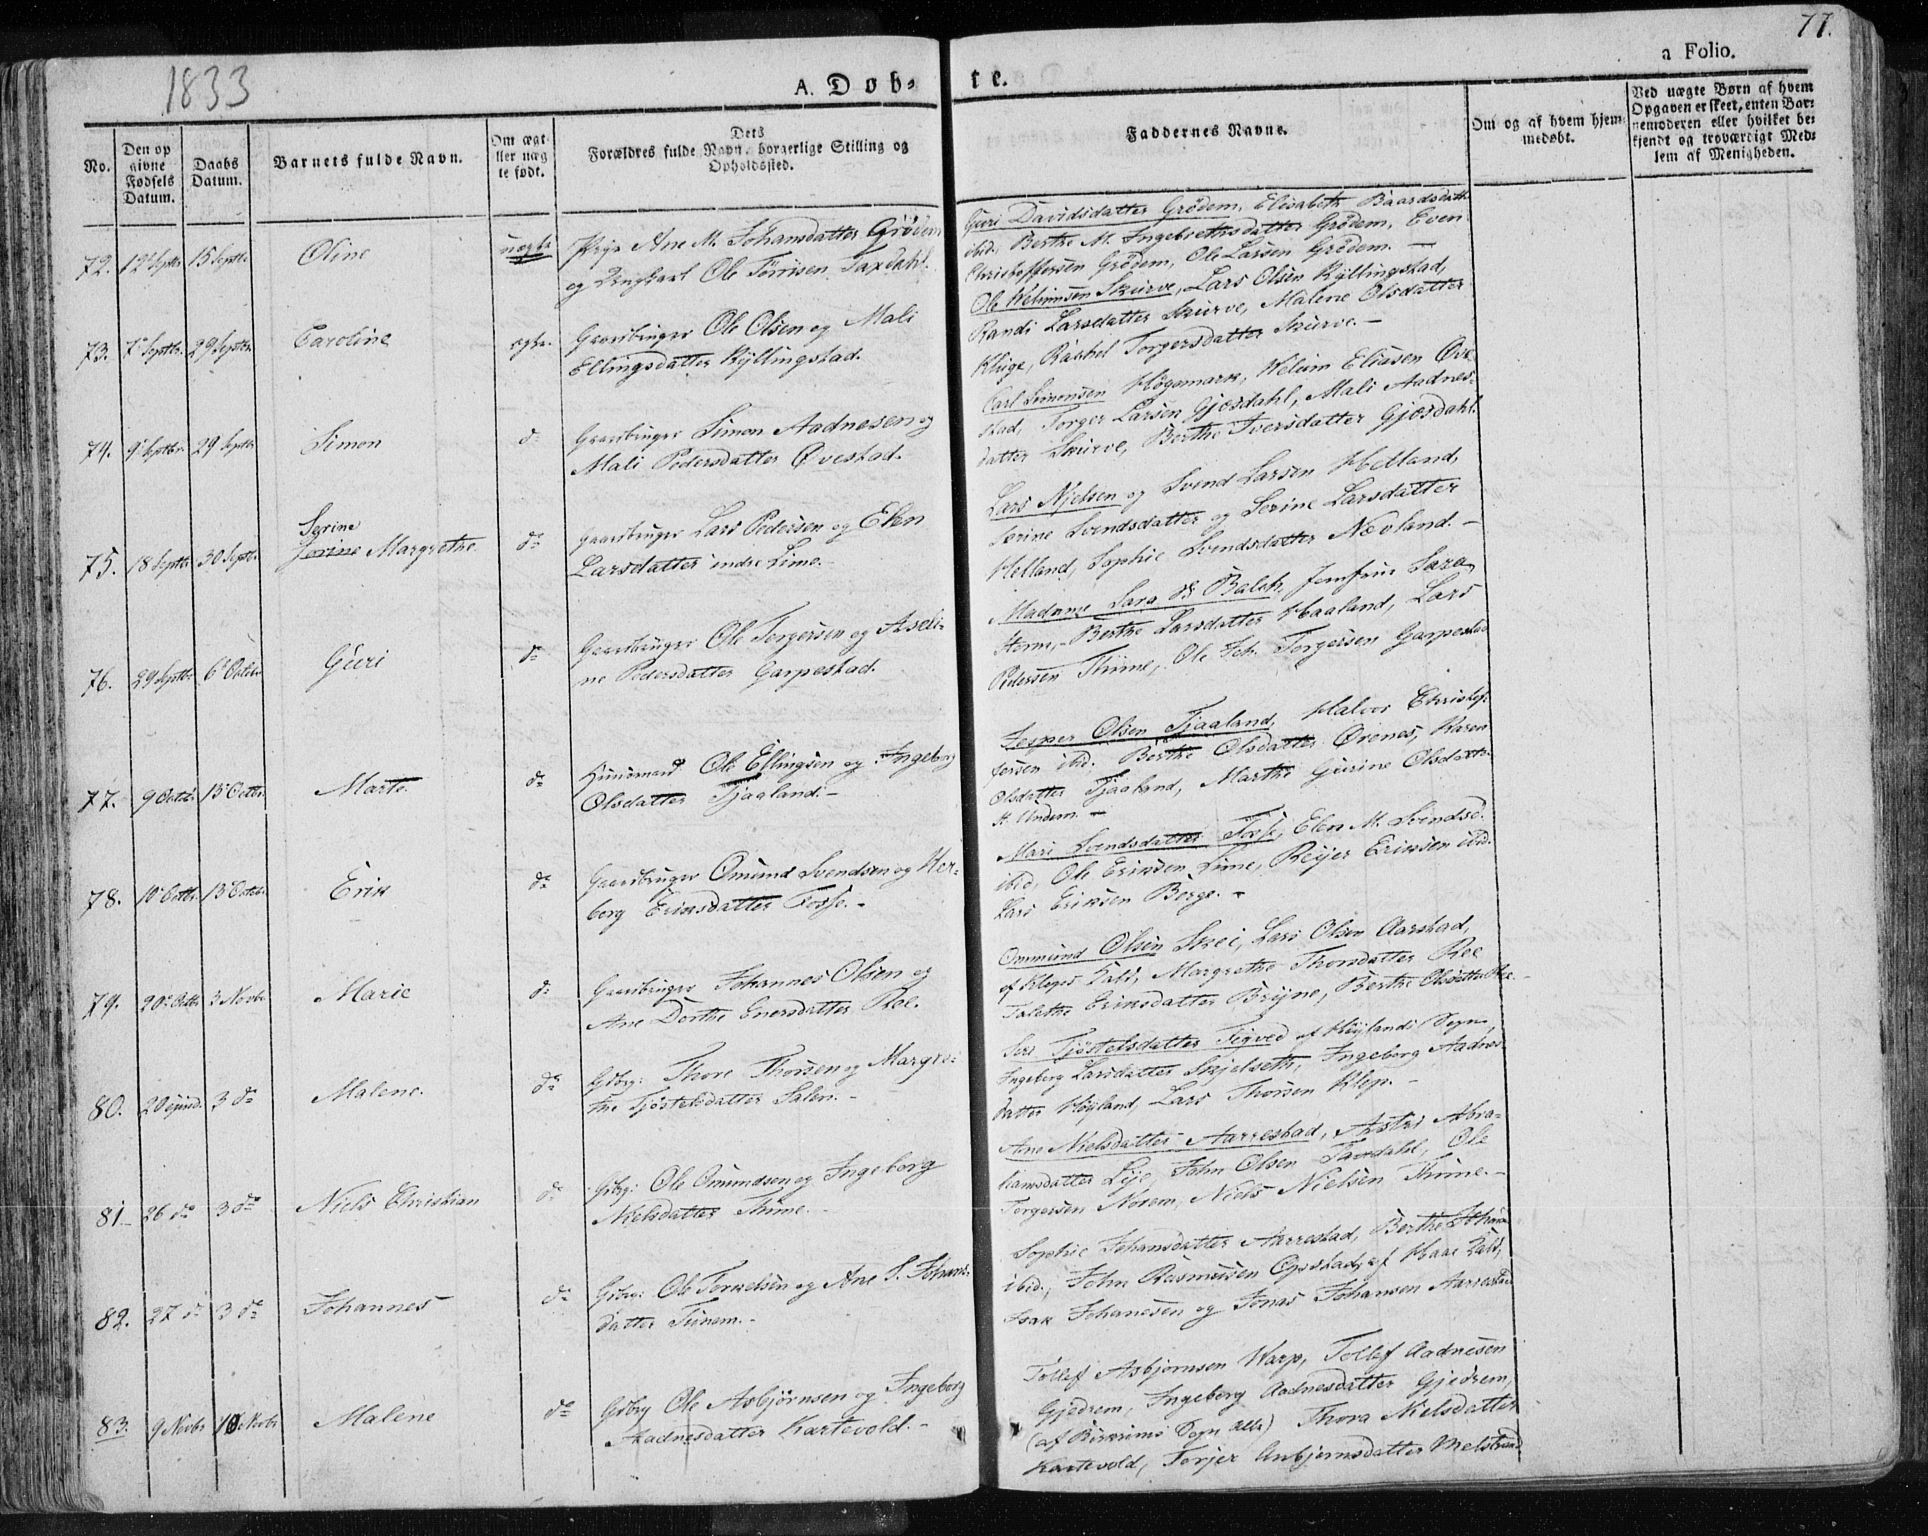 77.
1833
A. Døb-
te.
a Folio.
No.
Den op
givne
Fødsels
Datum.
Daabs
Datum.
Barnets fulde Navn.
Om ægt
ller uæg
te født.
Dets
Forældres fulde Navn, borgerlige Stilling og
Opholdssted.
Faddernes Navne.
Om og af hvem hjem
medøbt.
Ved uægte Børn af hvem
Opgaven er skeet, enten Bar-
nemoderen eller hvilket be-
kjendt og troværdigt Med-
lem af Menigheden.
72. 12 Septbr 15 Septbr Oline uægte Pige Ane M. Johansdatter Grødem
og Ungkarl Ole Tørrisen Taxdahl.
Guri Davidsdatter Grödem, Elisabeth Baardsdatt
ibid, Berthe M. Ingebrethsdatter Grödem, Even
Christoffersen Grödem, Ole Larsen Grödem. —
73. 7 Septbr. 29 Septbr. Caroline ægte. Gaardbruger Ole Olsen og Mali
Ellingsdatter Kyllingstad.
Ole Welumsen Skurve, Lars Olsen Kyllingstad,
Randi Larsdatter Skurve, Malene Olsdatter
Kluge, Rachel Torgersdatter Skurve. —
74. 9 Septbr. 29 Septbr Simon do Gaardbruger Simon Aadnesen og
Mali Pedersdatter Øvestad.
Carl Simonsen Högemark, Welum Eliasen Øve
stad, Torger Larsen Gjesdahl, Mali Aadnes-
datter Skurve, Berthe Iversdatter Gjesdahl.
75. 18 Septbr 30 Septbr. Serine
Jorine Margrethe do Gaardbruger Lars Pedersen og Elen
Larsdatter indre Lime. —
Lars Njelsen og Svend Larsen Helland,
Serine Svendsdatter og Serine Larsdatter
Helland, Sophie Svendsdatter Nevland. —
76. 29 Septbr 6 Octobr Guri do Gaardbruger Ole Torgersen og Aseli-
ne Pedersdatter Garpestad.
Madame Sara B Balch, Jomfrue Sara
Storm, Berthe Larsdatter Haaland, Lars
Pedersen Thime, Ole Joh. Torgersen Garpestad
77. 9 Octbr 13 Octbr. Marte do Huusmand Ole Ellingsen og Ingeborg
Olsdatter Tjaaland. —
Jesper Olsen Tjaaland, Halvor Christof-
fersen ibid, Berthe Olsdatter Orenes, Karen
Olsdatter Tjaaland, Marthe Gurine Olsdatter
St. Undem. —
78. 10 Octbr. 13 Octobr Erik do Gaardbruger Omund Svendsen og Her-
borg Eriksdatter Fosse. —
Mari Svendsdatter Fosse, Elen M. Svendsd.
ibid, Ole Eriksen Lime, Reijer Eriksen ibid.
Lars Eriksen Borge. —
79. 20 Octbr 3 Novbr Marie do Gaardbruger Johannes Olsen og
Ane Dorthe Enersdatter Ree.
Ommund Olsen Skei, Lars Olsen Aarstad,
af Kleps Kald, Margrethe Thorsdatter Ree
Talette Eriksdatter Bryne, Berthe Olsdatter Ree. —
80. 20 ejusd. 3 do Malene. do Gdbrg: Thore Thorsen og Margre-
the Tjöstelsdatter Salen. —
Siri Tjöstelsdatter Tigved af Höylands Sogn,
Ingeborg Larsdatter Skjelseth, Ingeborg Aadnes-
datter Höyland, Lars Thorsen Klep. —
81 26 do 3 do Niels Christian do Gdbrg: Ole Omundsen og Ingeborg
Nielsdatter Thime. —
Ane Nielsdatter Aarrestad, Astri Abra-
hamsdatter Lye, John Olsen Taxdahl, Ole
Torgersen Norem, Niels Nielsen Thime. —
82. 27 do 3 do Johannes do Gdbrg: Ole Torkelsen og Ane S. Johans-
datter Tunem. —
Sophie Johansdatter Aarrestad, Berthe Johansd
ibid, John Rasmussen Opstad, af Haae Kald,
Isak Johanesen og Jonas Johansen Aarrestad
83. 9 Novbr 10 Novbr Malene do Gdbrg Ole Asbjørnsen og Ingeborg
Aadnesdatter Kartevold. —
Tollef Asbjornsen Warp, Tollef Aadnesen
Gjedrem, Ingeborg Aadnesdatter Gjedrem,
(af Birkrims Sogn alle) Thora Nielsdatter
Kartevold, Torjer Anbjørnsdatter Melstrand